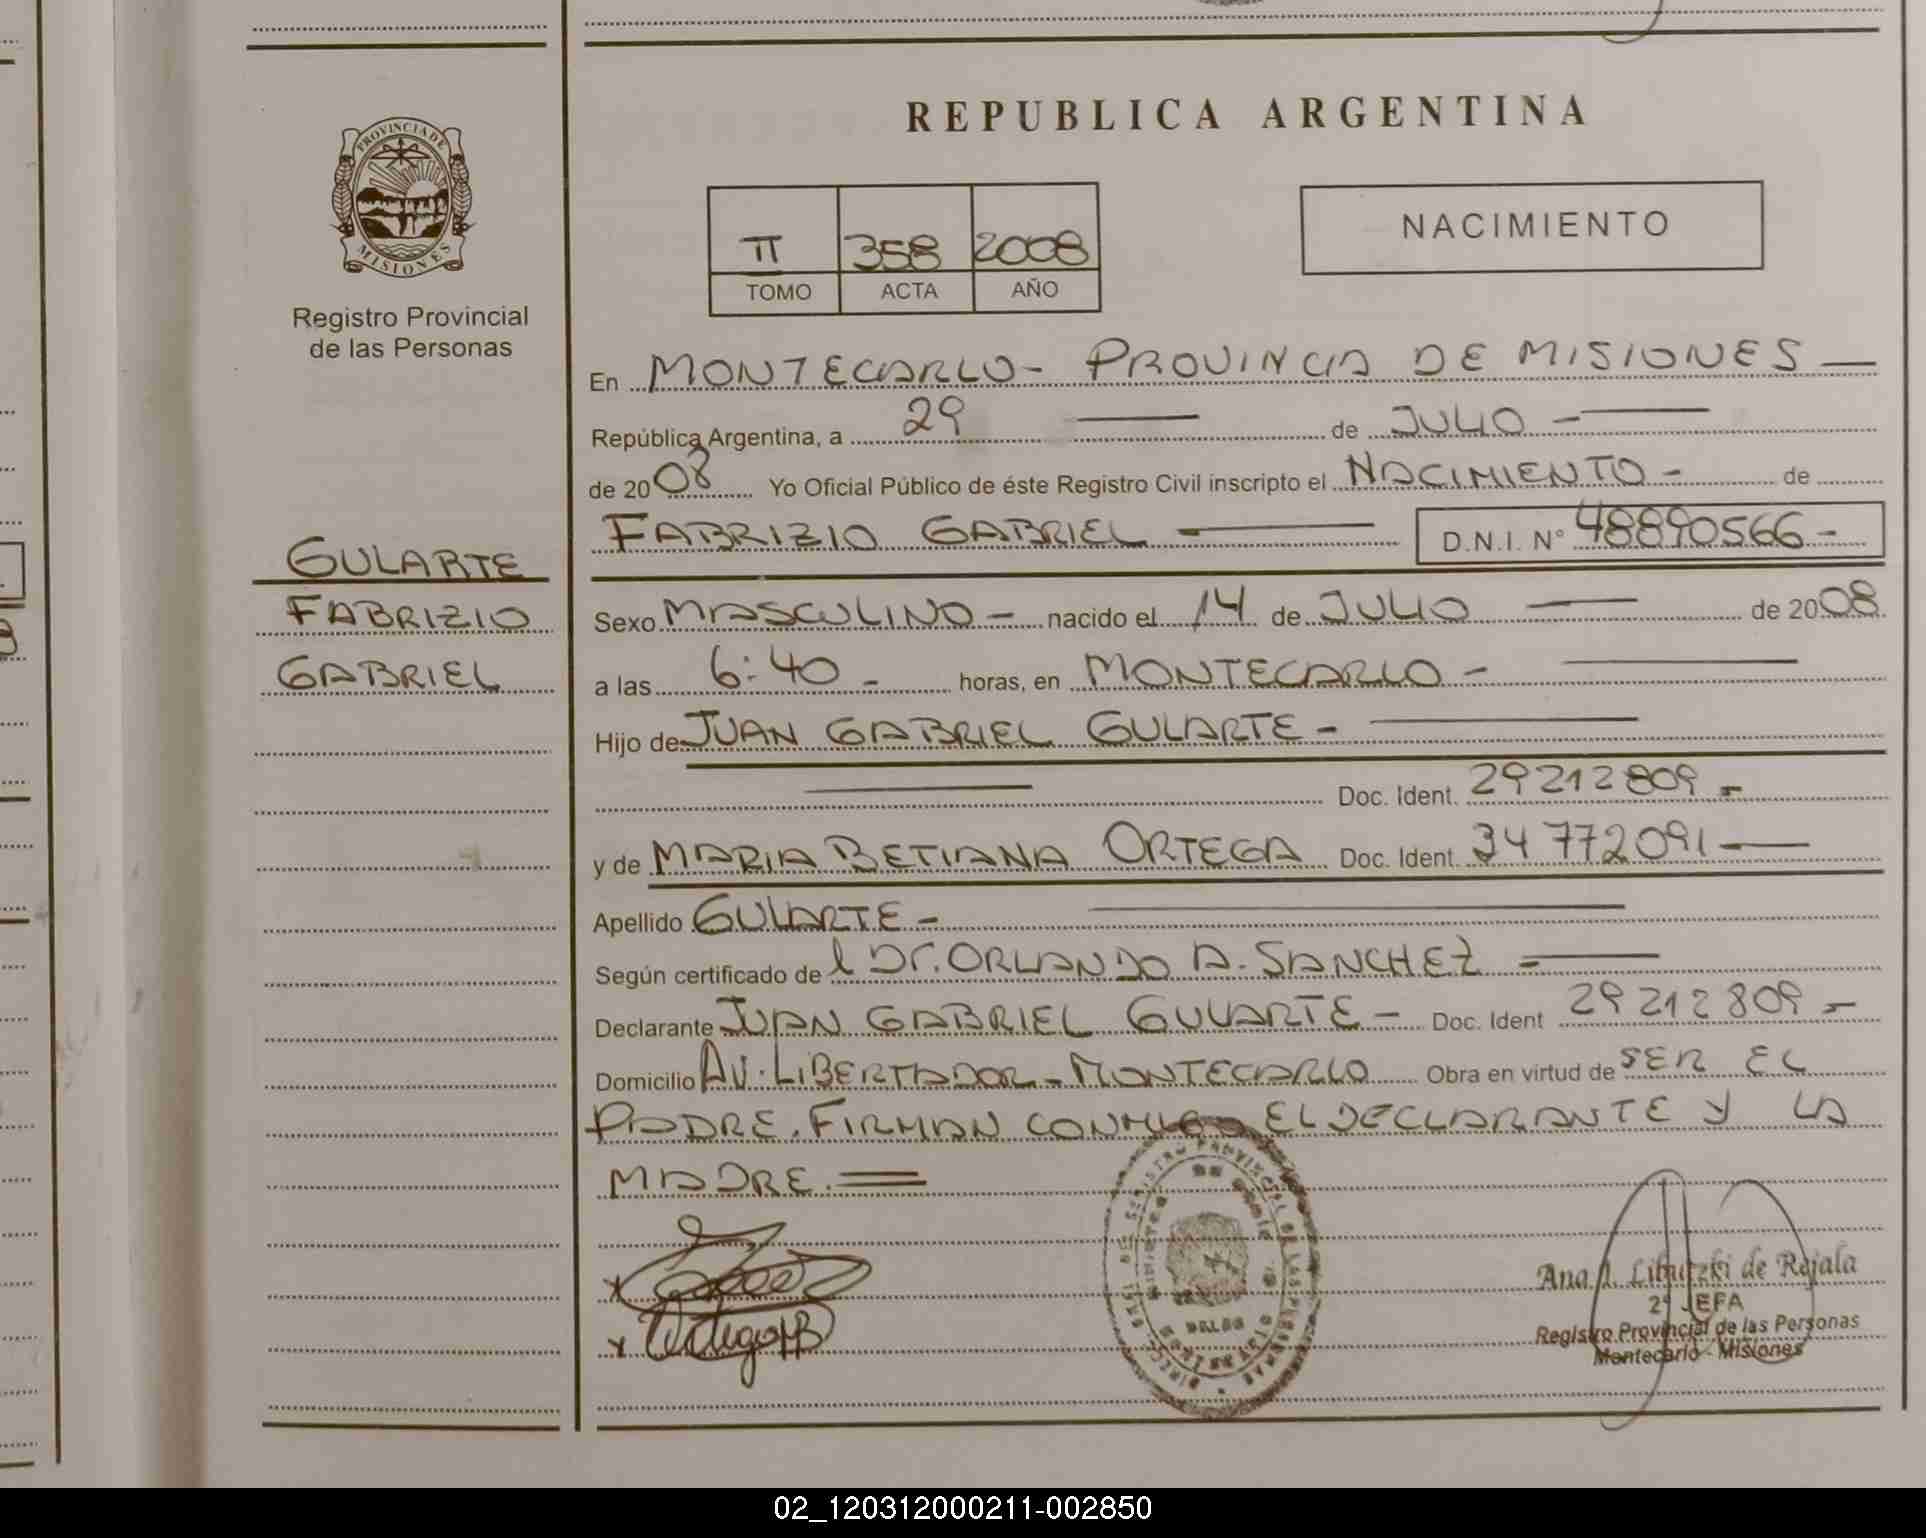 REPUBLICA ARGENTINA
PROVINCIA DE
MISIONES
Registro Provincial
de las Personas
II 358 2008
TOMO ACTA AÑO
NACIMIENTO
En MONTECARLO - PROVINCIA DE MISIONES —
República Argentina, a 29 — de JULIO —
de 2008 Yo Oficial Público de éste Registro Civil inscripto el NACIMIENTO - de
FABRIZIO GABRIEL — D.N.I. N° 48890566 -
GULARTE
FABRIZIO
GABRIEL
Sexo MASCULINO - nacido el 14 de JULIO — de 2008
a las 6:40 - horas, en MONTECARLO - —
Hijo de JUAN GABRIEL GULARTE - —
— Doc. Ident. 29212809 -
y de MARIA BETIANA ORTEGA Doc. Ident. 34772091 —
Apellido GULARTE - —
Según certificado de l Dr. ORLANDO A. SANCHEZ —
Declarante JUAN GABRIEL GULARTE - Doc. Ident 29212809 -
Domicilio AV. LIBERTADOR - MONTECARLO Obra en virtud de SER EL
PADRE. FIRMAN CONMIGO EL DECLARANTE Y LA
MADRE. =
x
x Ortega MB
Ana J. Libutzki de Rejala
2ª JEFA
Registro Provincial de las Personas
Montecarlo - Misiones
02_120312000211-002850